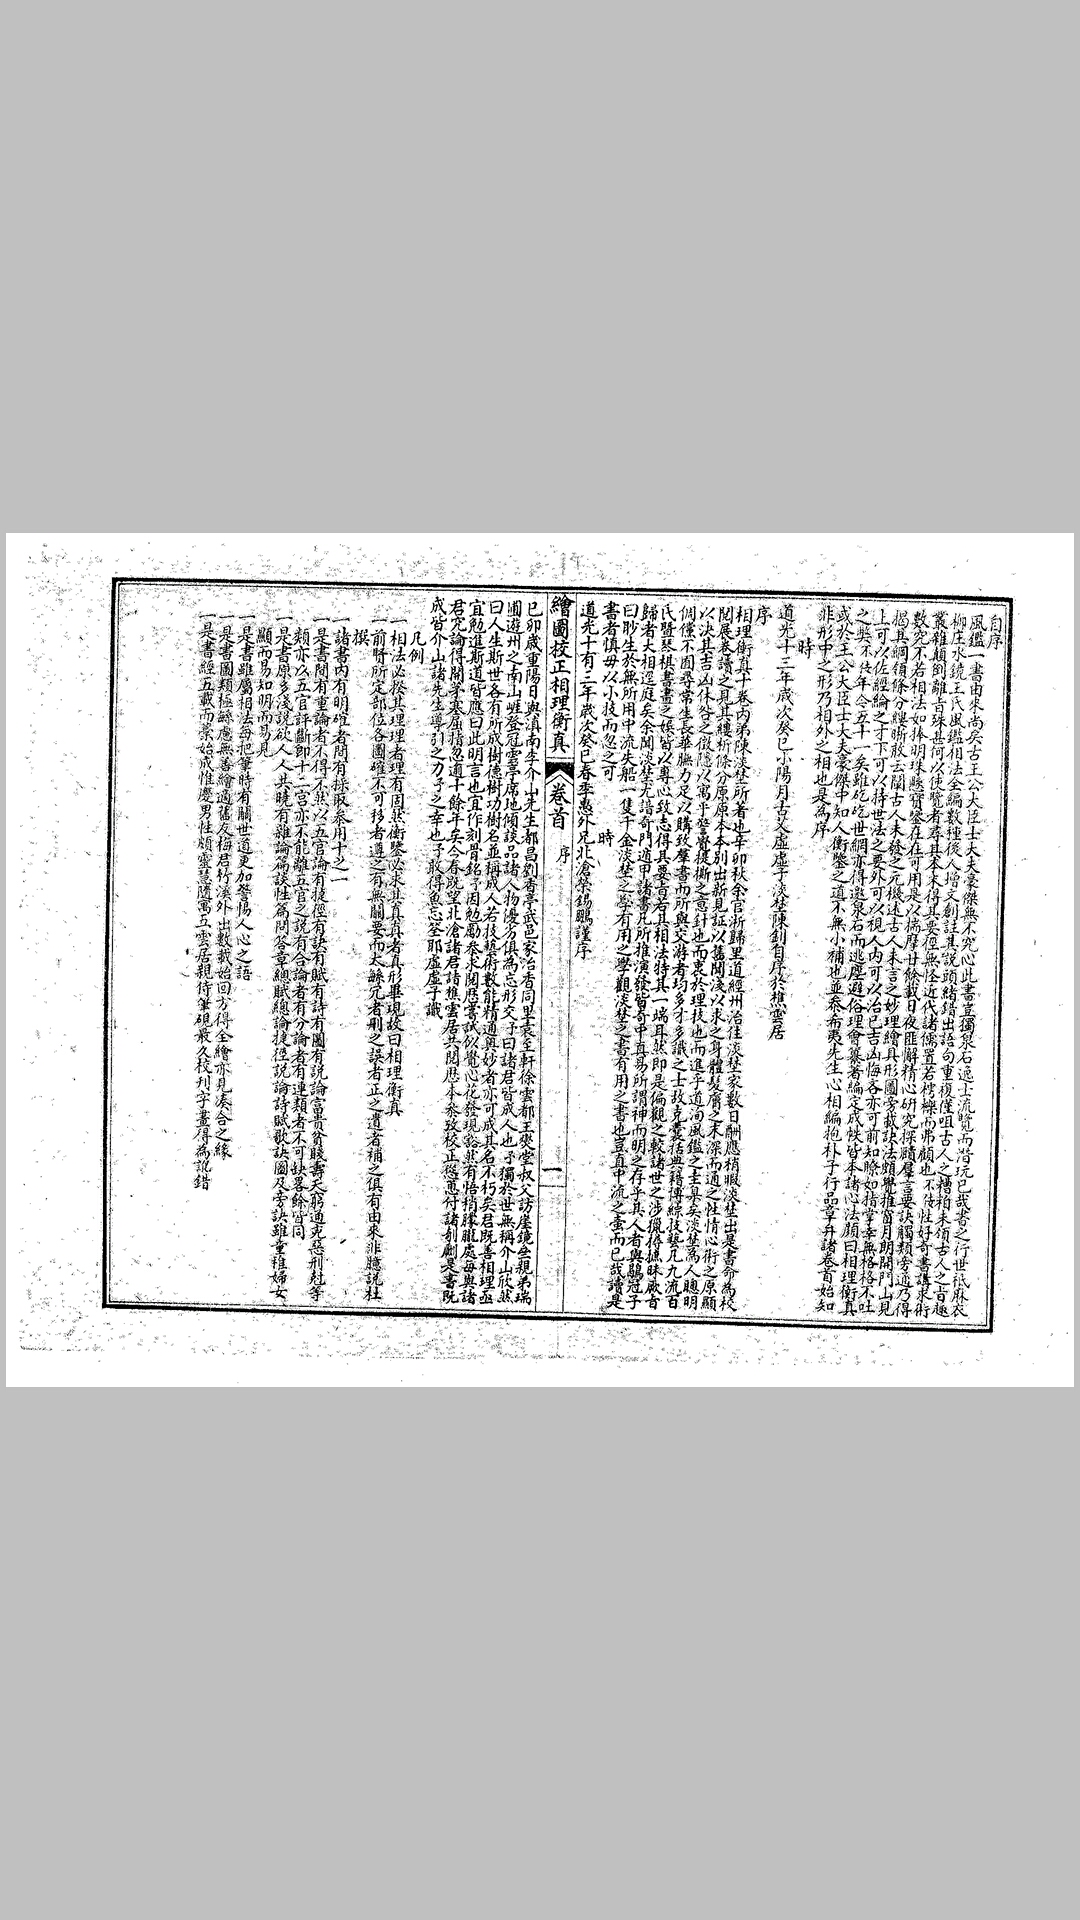 自序
風鑑一書由來尚矣古王公大臣士大夫豪傑無不究心此書豈獨泉石逸士流覽而潛玩已哉書之行世祇麻衣
柳庄水鏡王氏風鑑相法全編數種後人增文創註其說頭緒錯出語句重複僅咀古人之糟粕未領古人之旨趣
叢雜顛倒離吉珠甚何以使覽者尋其本末得其要徑無怪近代諸儒置若樗櫟而弗顧也不佞性好奇書講求術
數究不若相法如捧明珠縣寶鑒在在可用是以揣摩廿餘載日夜匪懈精心研究探賾羣言要訣觸類旁通乃得
揭其綱領條分縷晰敢云闡古人未發之元機述古人未言之妙理繪具形圖旁載訣法頗覺推窗月朗開門山見
上可以佐經綸之才下可以持世法之要外可以視人內可以治已吉凶悔吝亦可前知瞭如指掌幸無格格不吐
之獘不佞年今五十一矣雖矻矻世網亦得邀泉石而逃塵避俗理會纂著編定成帙皆本諸心法顏曰相理衡真
或於王公大臣士大夫豪傑中知人衡鑒之道不無小補也並叅希夷先生心相編抱朴子行品章弁諸卷首始知
非形中之形乃相外之相也是為序
時
道光十三年歲次癸巳小陽月古爻虛虛子淡埜陳釗自序於樵雲居
序
相理衡真十卷內弟陳淡埜所著也辛卯秋余官浙歸里道經州治往淡埜家數日酬應稍暇淡埜出是書命為校
閱展卷讀之見其縷析條分原原本本別出新見証以舊聞淺以求之身體髮膚之末深而通之性情心術之原顯
以決其吉凶休咎之徵隱以寓乎警覺提撕之意針也而衷於理技也而進乎道洵風鑑之圭臬矣淡埜為人聰明
倜儻不囿尋常生長華膴力足以購致羣書而所與交游者均多才多識之士故克囊括典籍博綜技藝凡九流百
氏暨琴棋書畫之娛皆以專心致志得其要旨若其相法特其一端耳然即是偏觀之較諸世之涉獵撏撦昧厥旨
歸者大相逕庭矣余聞淡埜尤諳奇門遁甲諸書凡所推演發皆奇中真易所謂神而明之存乎其人者與鶡冠子
曰眇生於無所用中流失船一隻千金淡埜之學有用之學觀淡埜之書有用之書也豈直中流之壺而已哉讀是
書者慎毋以小技而忽之可
時
道光十有三年歲次癸巳春季愚外兄北滄榮錫鵬謹序
繪圖校正相理衡真 卷首 序 一
已卯歲重陽日與滇南李介山先生都昌劉香亭武邑家冶香同里袁至軒徐雲都王爕堂叔父訪崖鏡埜親弟瑞
圃遊州之南山蜓登冠雲亭席地傾談品諸人物邊旁俱為忘形交予曰諸君皆成人也予獨於世無稱介山欣然
曰人生斯世各有所成樹德樹功樹名並稱成人若技藝術數能精通奧妙者亦可成其名不朽矣君既善相理亟
宜勉進斯道皆應曰此明言也宜作刻骨銘予因勉勵叅求閱歷嘗試似覺心花發現豁然有悟稍朦朧處每與諸
君究論得開茅塞屈指忽週十餘年矣今春既望北滄諸君諸樵雲居共閱歷本叅攷校正慫慂付諸剞劂是書既
成皆介山諸先生導引之力予之幸也予敢得魚忘筌耶虛虛子識
凡例
一相法必撥其理理者理有固然衡鑒必求其真真者真形畢現故曰相理衡真
一前賢所定部位各圖確不可移者遵之有無關要而太繇冗者刪之誤者正之遺者補之俱有由來非臆說杜
撰
一諸書內有明確者間有採取叅用十之一
一是書間有重論者不得不然以五官論有捷徑有訣有賦有詩有圖有說論富貴貧賤壽夭窮通克惡刑尅等
類亦以五官評斷即十二宮亦不能離五官之說有合論者有分論者有連類者不可缺畧餘皆同
一是書原多淺說欲人人共曉有雜論篇談性篇問答章總賦總論捷徑說論詩賦歌訣圖及旁訣雖童稚婦女
顯而易知明而易見
一是書雖屬相法每把筆時有關世道更加警惕人心之語
一是書圖類極繇慮無善繪適舊友梅君竹溪外出數載始回方得全繪亦見湊合之緣
一是書經五載而藁始成惟慶男性頗靈慧隨寓五雲居親侍筆硯最久校刋字畫得為訛錯